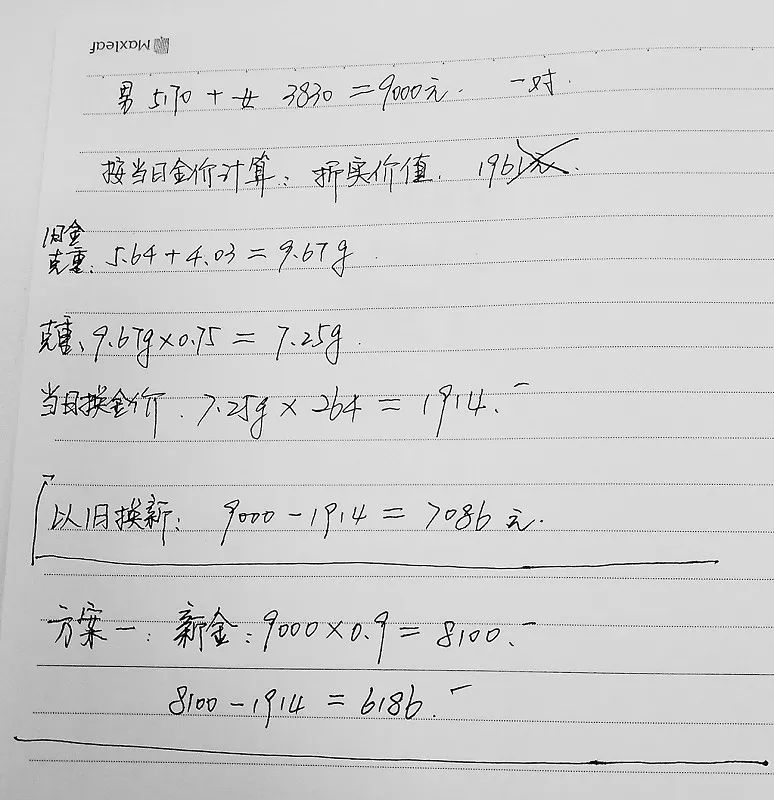 Maxleaf
男 5170 + 女 3830 = 9000元. 一对.
按当日金价计算: 折实价值. 1961元.
旧金
克重: 5.64 + 4.03 = 9.67g.
克重: 9.67g×0.75 = 7.25g.
当日换金价. 7.25g × 264 = 1914.-
以旧换新: 9000 - 1914 = 7086元.
方案一: 新金: 9000×0.9 = 8100.-
8100 - 1914 = 6186.-